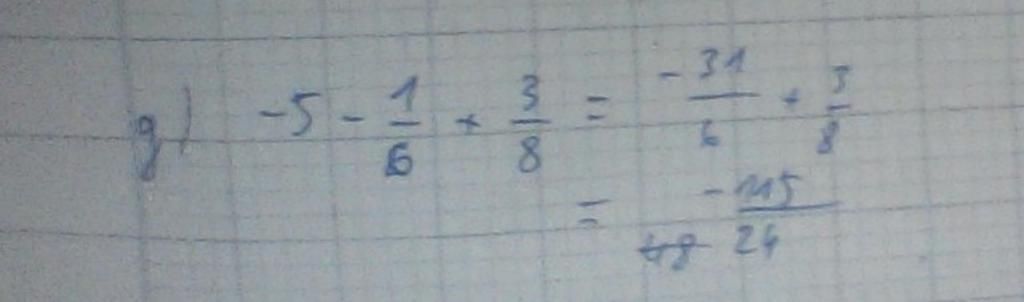 g) -5 - 1/6 + 3/8 = -31/6 + 3/8
= -115/24